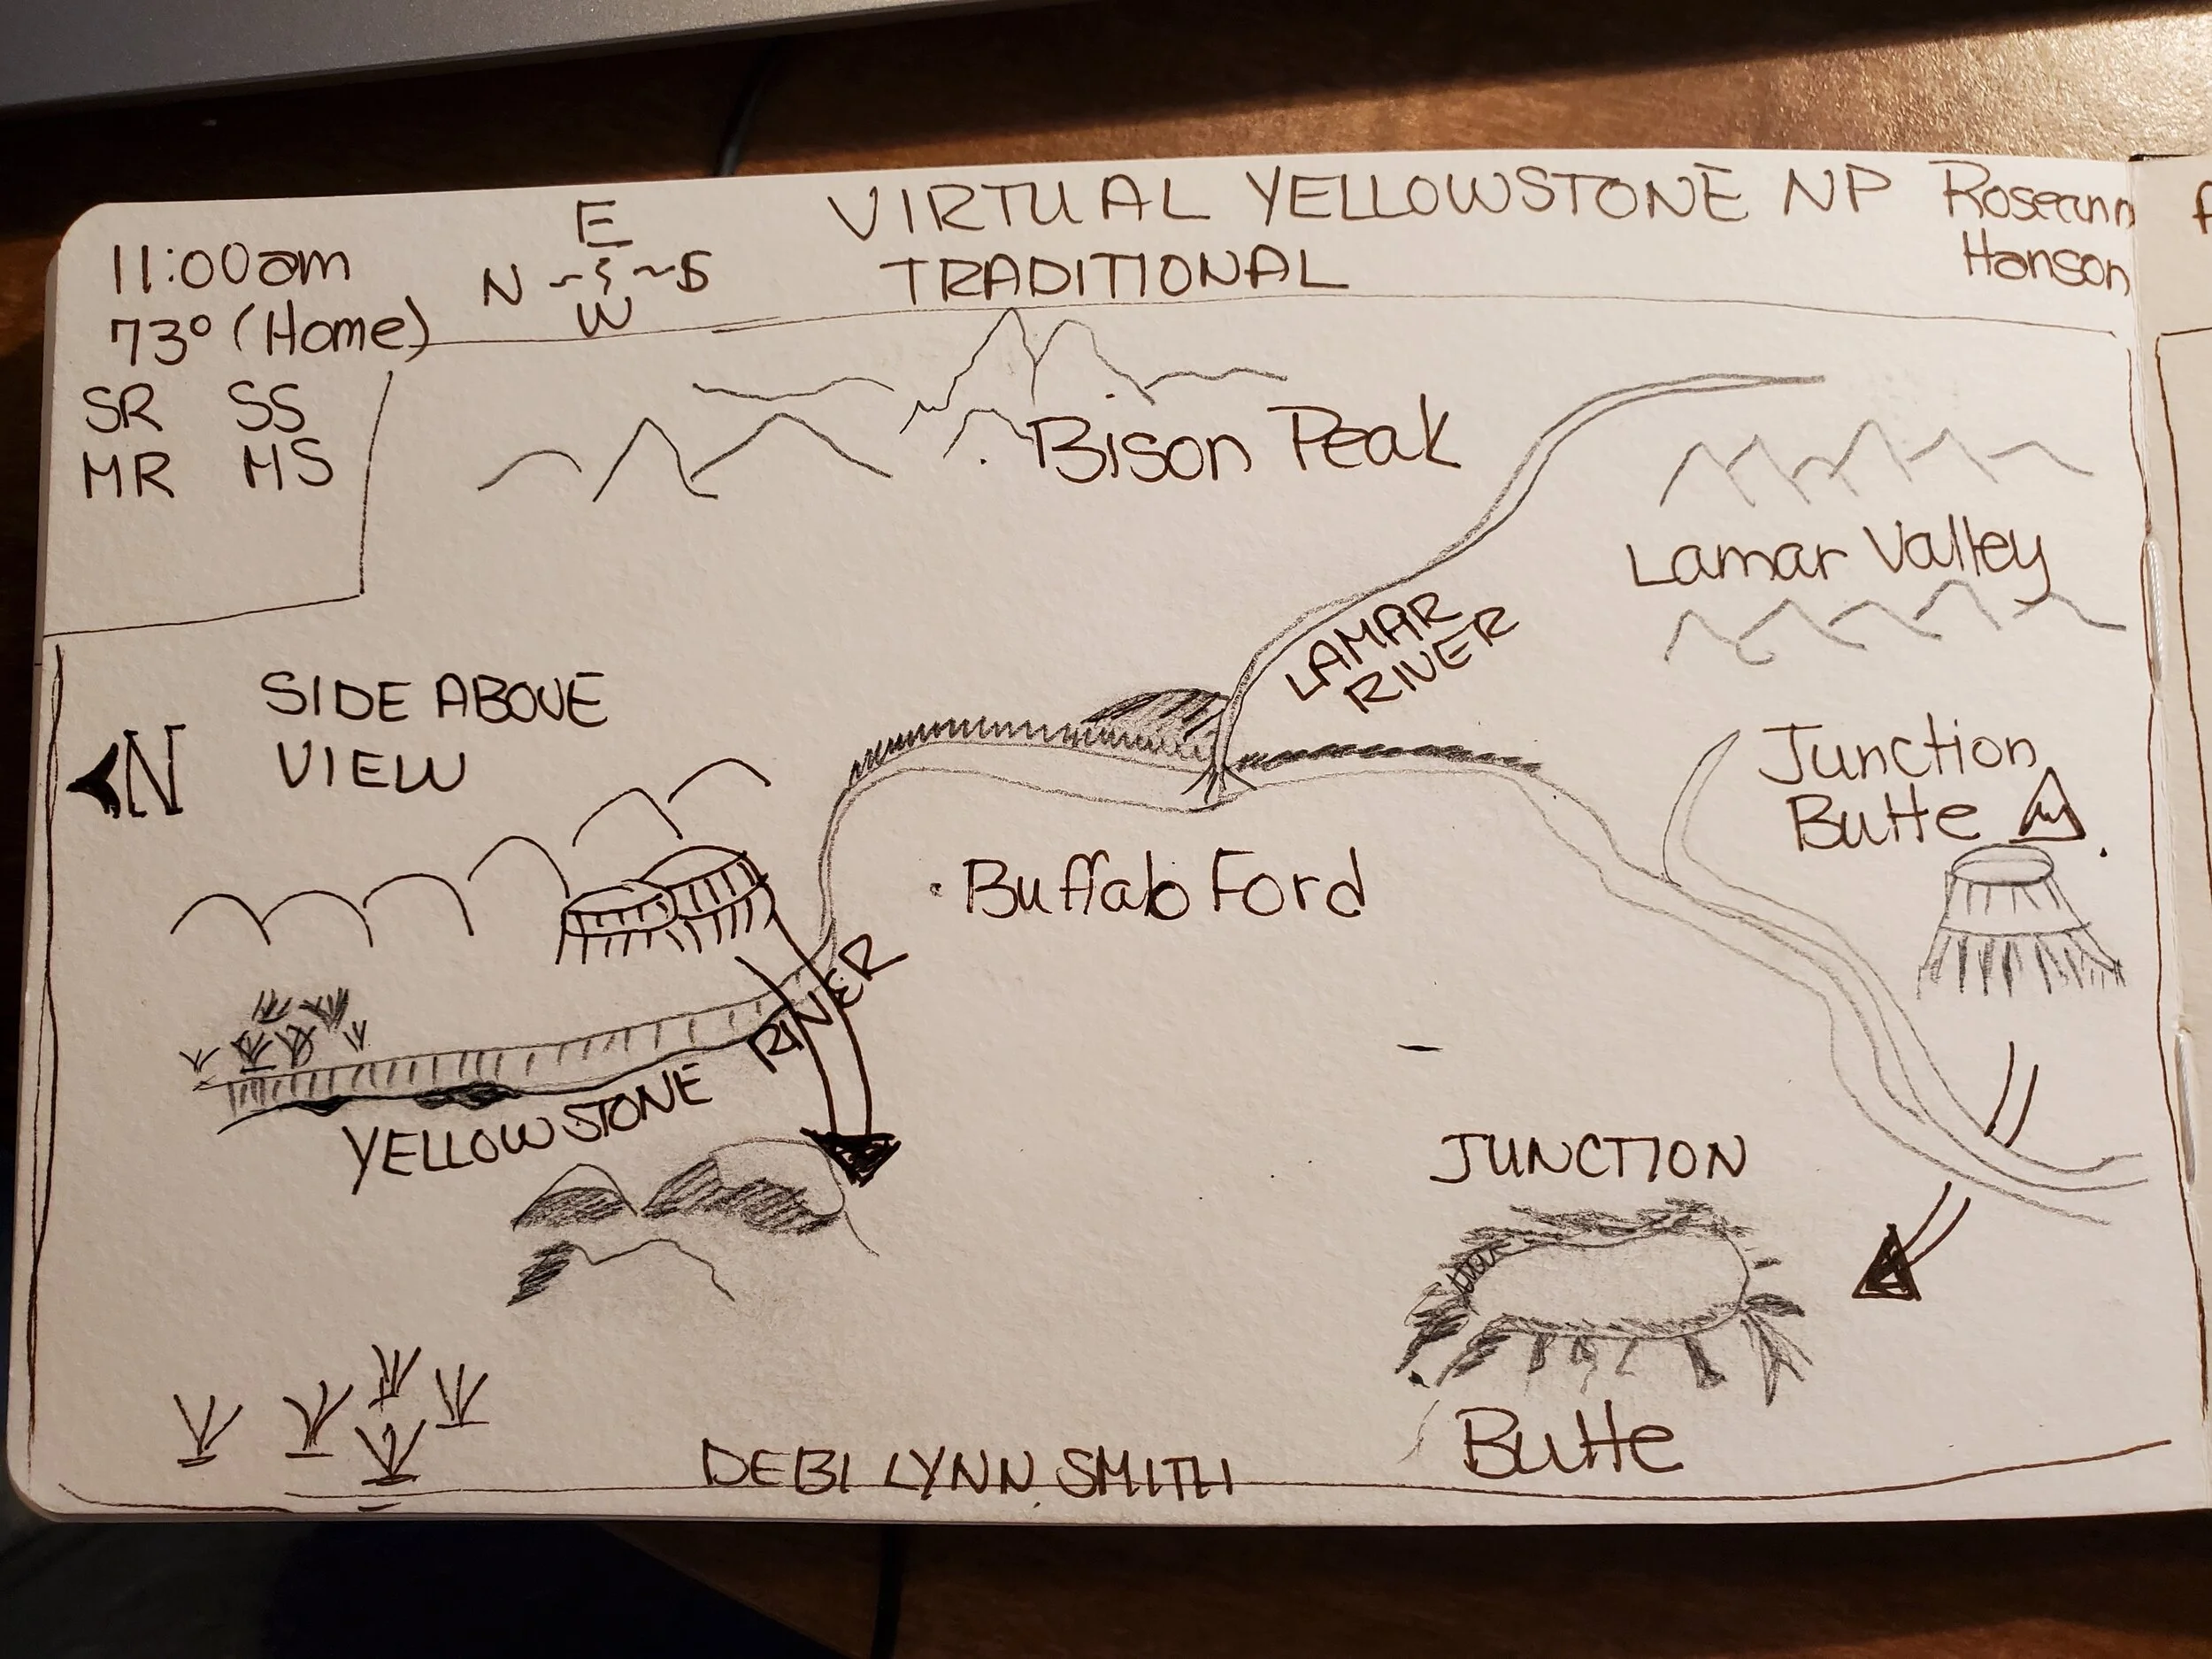 VIRTUAL YELLOWSTONE NP
TRADITIONAL
Roseann
Hanson
11:00am
73° (Home)
SR SS
MR MS
E
N S
W
Bison Peak
Lamar Valley
LAMAR
RIVER
SIDE ABOVE
VIEW
N
Junction
Butte
Buffalo Ford
YELLOWSTONE RIVER
JUNCTION
Butte
DEBI LYNN SMITH